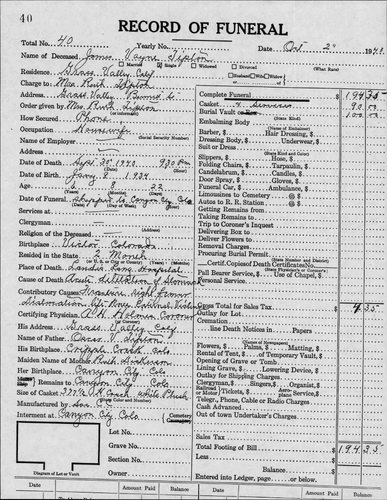 40
RECORD OF FUNERAL
Total No. 40 Yearly No. Date, Oct. 2" 1940
Name of Deceased James Wayne Tipton
Married Single Widowed Divorced (What Race)
Residence Grass Valley Calif
Charge to Mrs Ruth Tipton
Address Grass Valley
Order given by Mrs Ruth Tipton
How Secured Phone
Occupation
Name of Employer (Social Security Number)
Address
Date of Death Sept 30 1940 9:30 P.M.
Date of Birth Jany 8 1934
Age 6 8 22
Date of Funeral Shipped to Canyon City Colo
Services at
Clergyman
Religion of the Deceased
Birthplace Victor Colorado
Resided in the State 2 Month
Place of Death Hospital
Cause of Death Acute dilatation of Stomach
Contributory Causes Fracture right femur
Certifying Physician A H Holmes Coroner
His Address Grass Valley Calf
Name of Father Oscar V Tipton
His Birthplace Cripple Creek Colo
Maiden Name of Mother Ruth
Her Birthplace Canyon City Colo
Remains to Canyon City Colo
Size of Casket White Plush
Manufactured by
Interment at Canyon City Colo Cemetery
Lot No.
Grave No.
Section No.
Owner
Diagram of Lot or Vault
Complete Funeral 194 35
Casket & Services 90 00
Burial Vault or Box 100 00
(State Kind)
Embalming Body
(Name of Embalmer)
Barber, Hair Dressing,
Dressing Body, Underwear,
Suit or Dress
(State Kind)
Slippers, Hose,
Folding Chairs, Tarpaulin,
Candelabrum, Candles,
Door Spray, Gloves,
Funeral Car, Ambulance,
Limousines to Cemetery
Autos to R. R. Station
Getting Remains from
Taking Remains to
Trip to Coroner's Inquest
Delivering Box to
Deliver Flowers to
Removal Charges,
Procuring Burial Permit
Certif. Copies of Death Certificate No.
Pall Bearer Service, Use of Chapel,
Personal Service
Gross Total for Sales Tax 4 35
Outlay for Lot
Cremation
line Death Notices in Papers
Flowers, Palms, Matting,
Rental of Tent, of Temporary Vault,
Opening of Grave or Tomb
Lining Grave, Lowering Device,
Outlay for Shipping Charges
Clergyman, Singers, Organist,
Railroad or Motor Tickets, Aeroplane Service,
Telegr., Phone, Cable or Radio Charges
Cash Advanced
Out of town Undertaker's Charges
Sales Tax
Total Footing of Bill 194 35
Less
Balance
Entered into Ledger, page or below.
Date Amount Paid Balance Date Amount Paid Balance